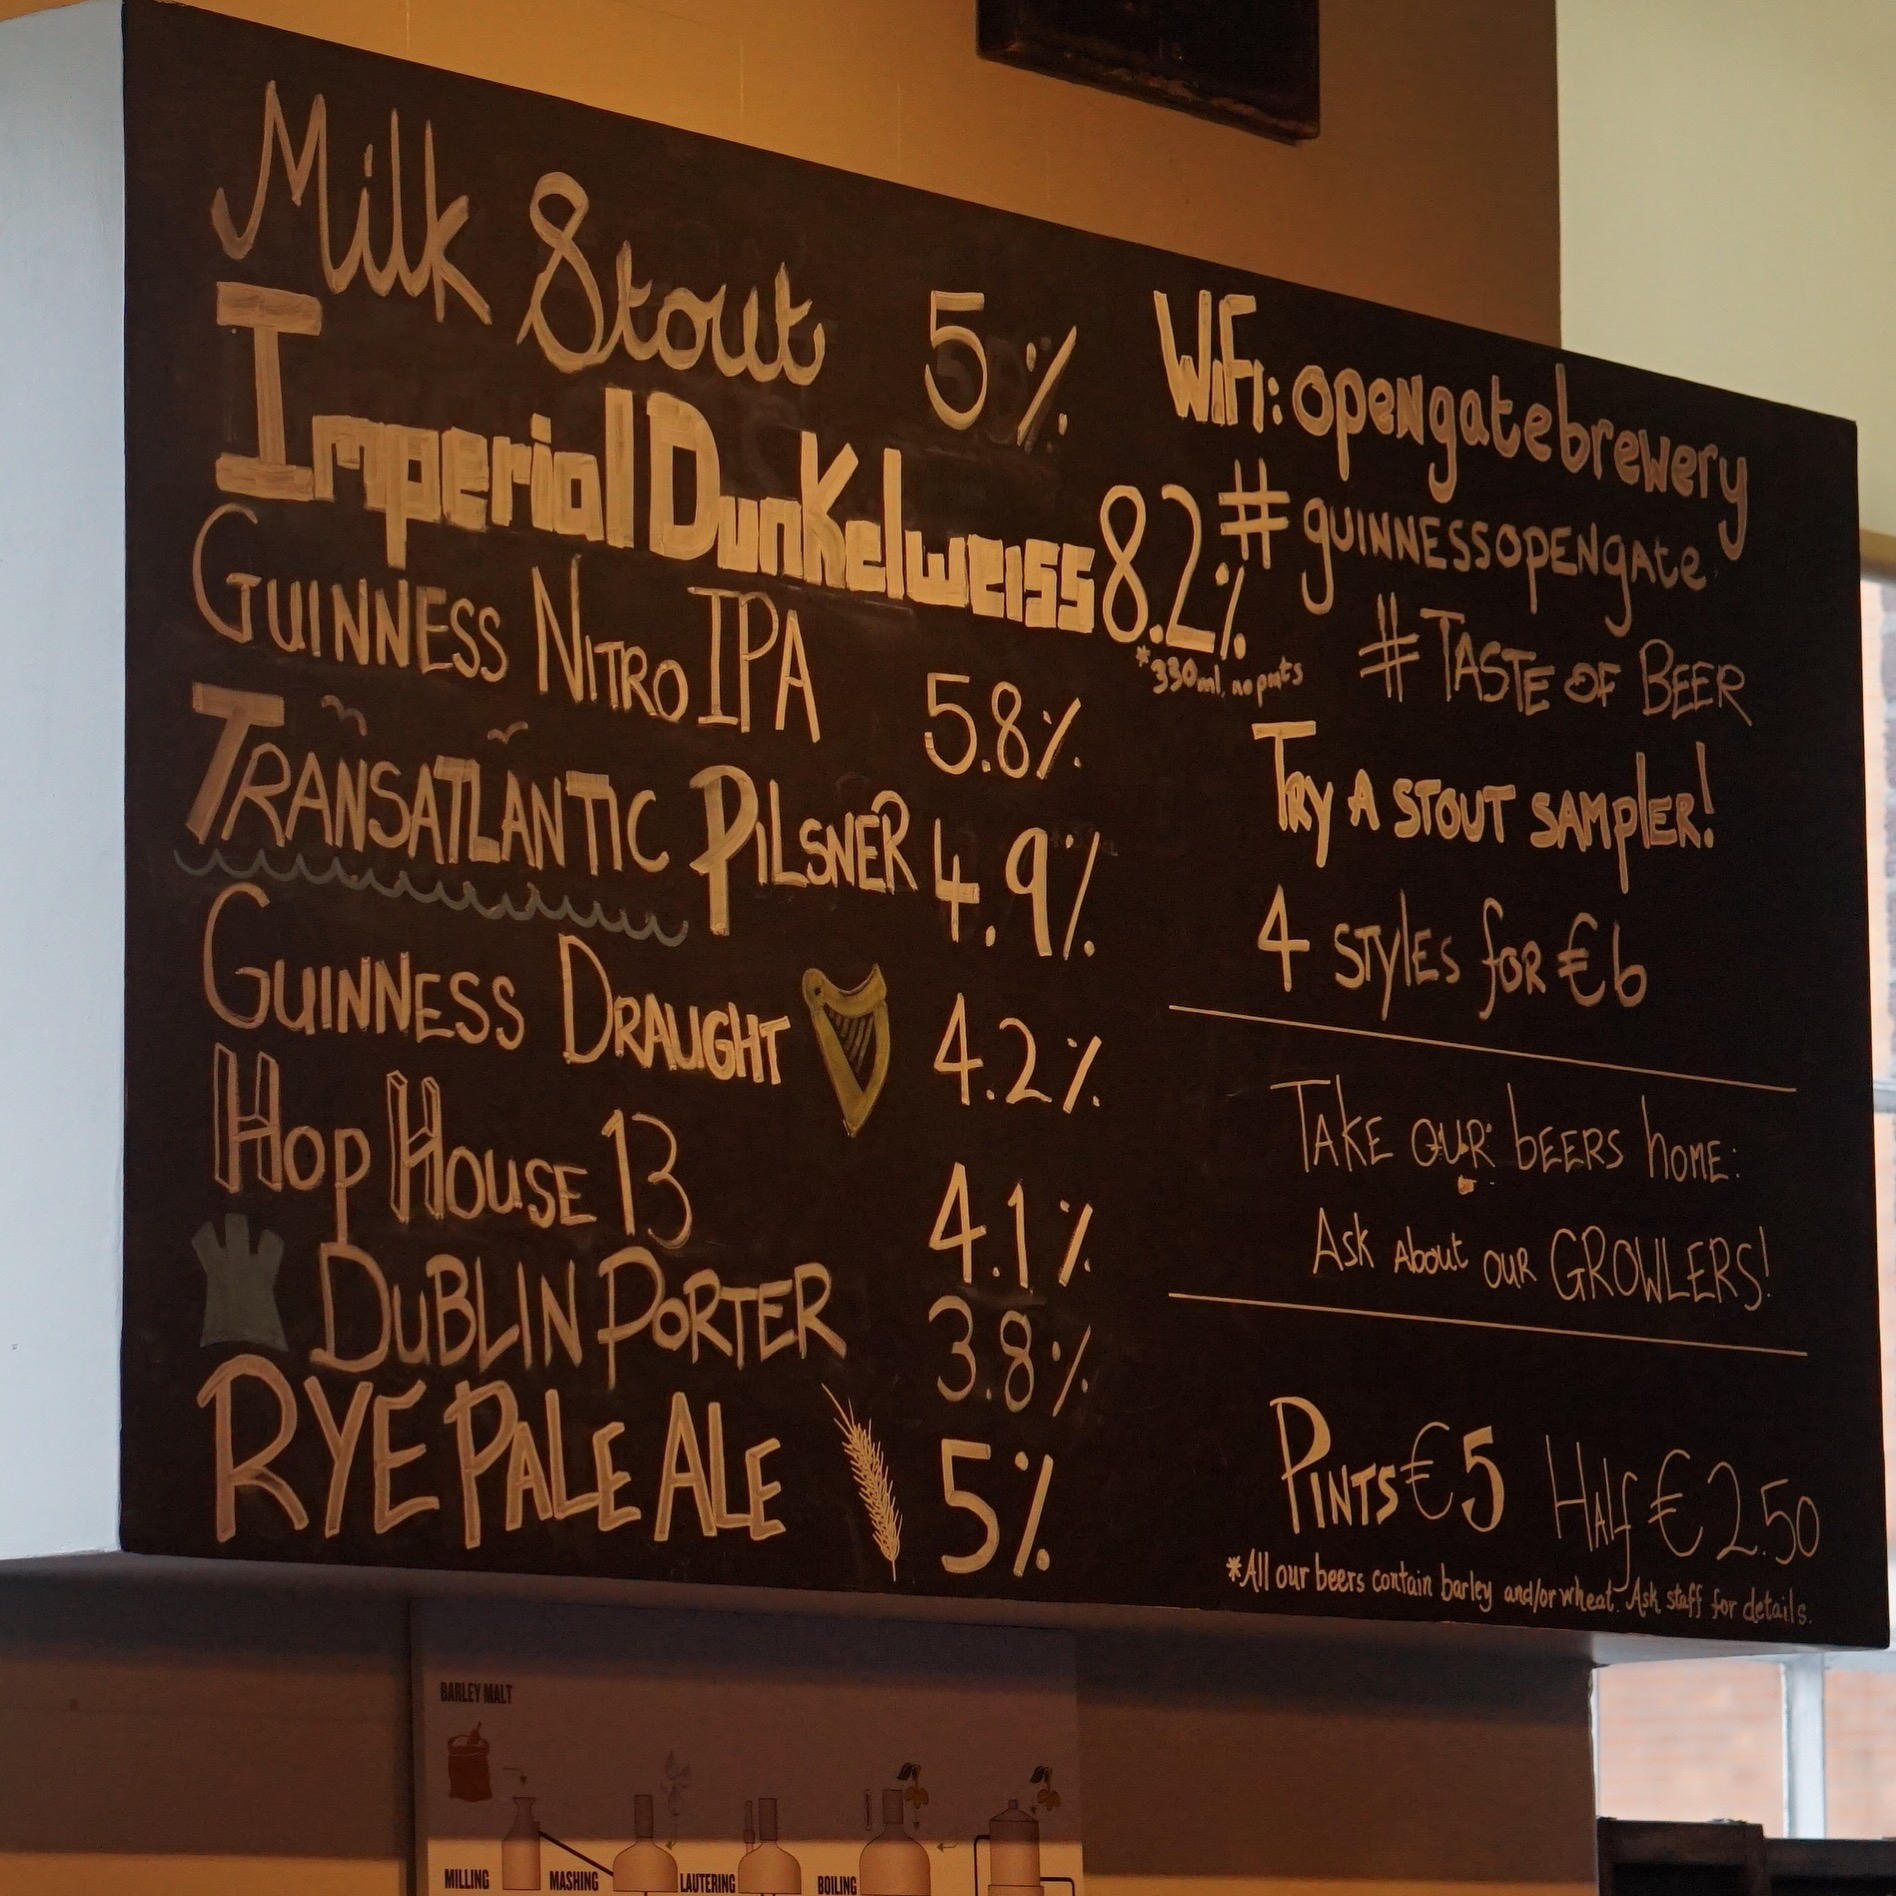 Milk Stout 5%
Imperial Dunkelweiss 8.2%
*330ml, no pints
GUINNESS NITRO IPA 5.8%
TRANSATLANTIC PILSNER 4.9%
GUINNESS DRAUGHT 4.2%
HOP HOUSE 13 4.1%
DUBLIN PORTER 3.8%
RYE PALE ALE 5%
WiFi: opengatebrewery
#guinnessopengate
#TASTE OF BEER
TRY A STOUT SAMPLER!
4 STYLES FOR €6
TAKE OUR BEERS HOME:
ASK About OUR GROWLERS!
PINTS €5 HALF €2.50
*All our beers contain barley and/or wheat. Ask staff for details.
BARLEY MALT
MILLING MASHING LAUTERING BOILING